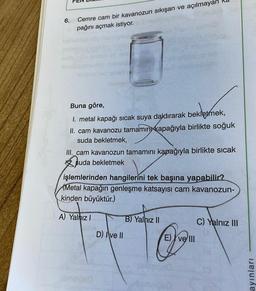 6. Cemre cam bir kavanozun sıkışan ve açılmayan
pağını açmak istiyor.
Buna göre,
I. metal kapağı sıcak suya daldırarak bekletmek,
II. cam kavanozu tamamını kapağıyla birlikte soğuk
suda bekletmek,
III. cam kavanozun tamamını kapağıyla birlikte sıcak
suda bekletmek
işlemlerinden hangilerini tek başına yapabilir?
(Metal kapağın genleşme katsayısı cam kavanozun-
kinden büyüktür.)
A) Yalnız I B) Yalnız II C) Yalnız III
D) I ve II E) I ve III
ayınları